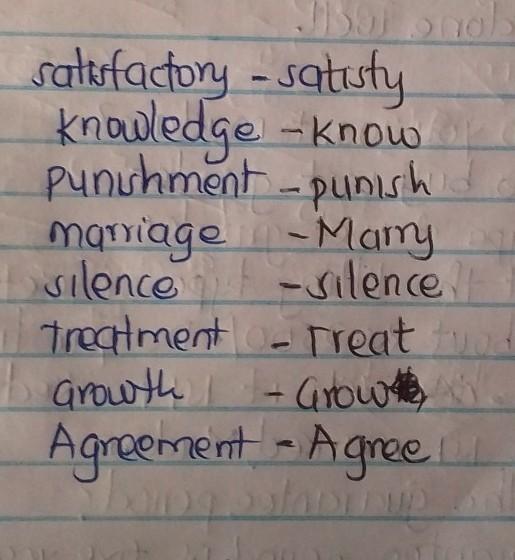 satisfactory - satisfy
knowledge - know
punishment - punish
marriage - Marry
silence - silence
treatment - Treat
Growth - Grow
Agreement - Agree